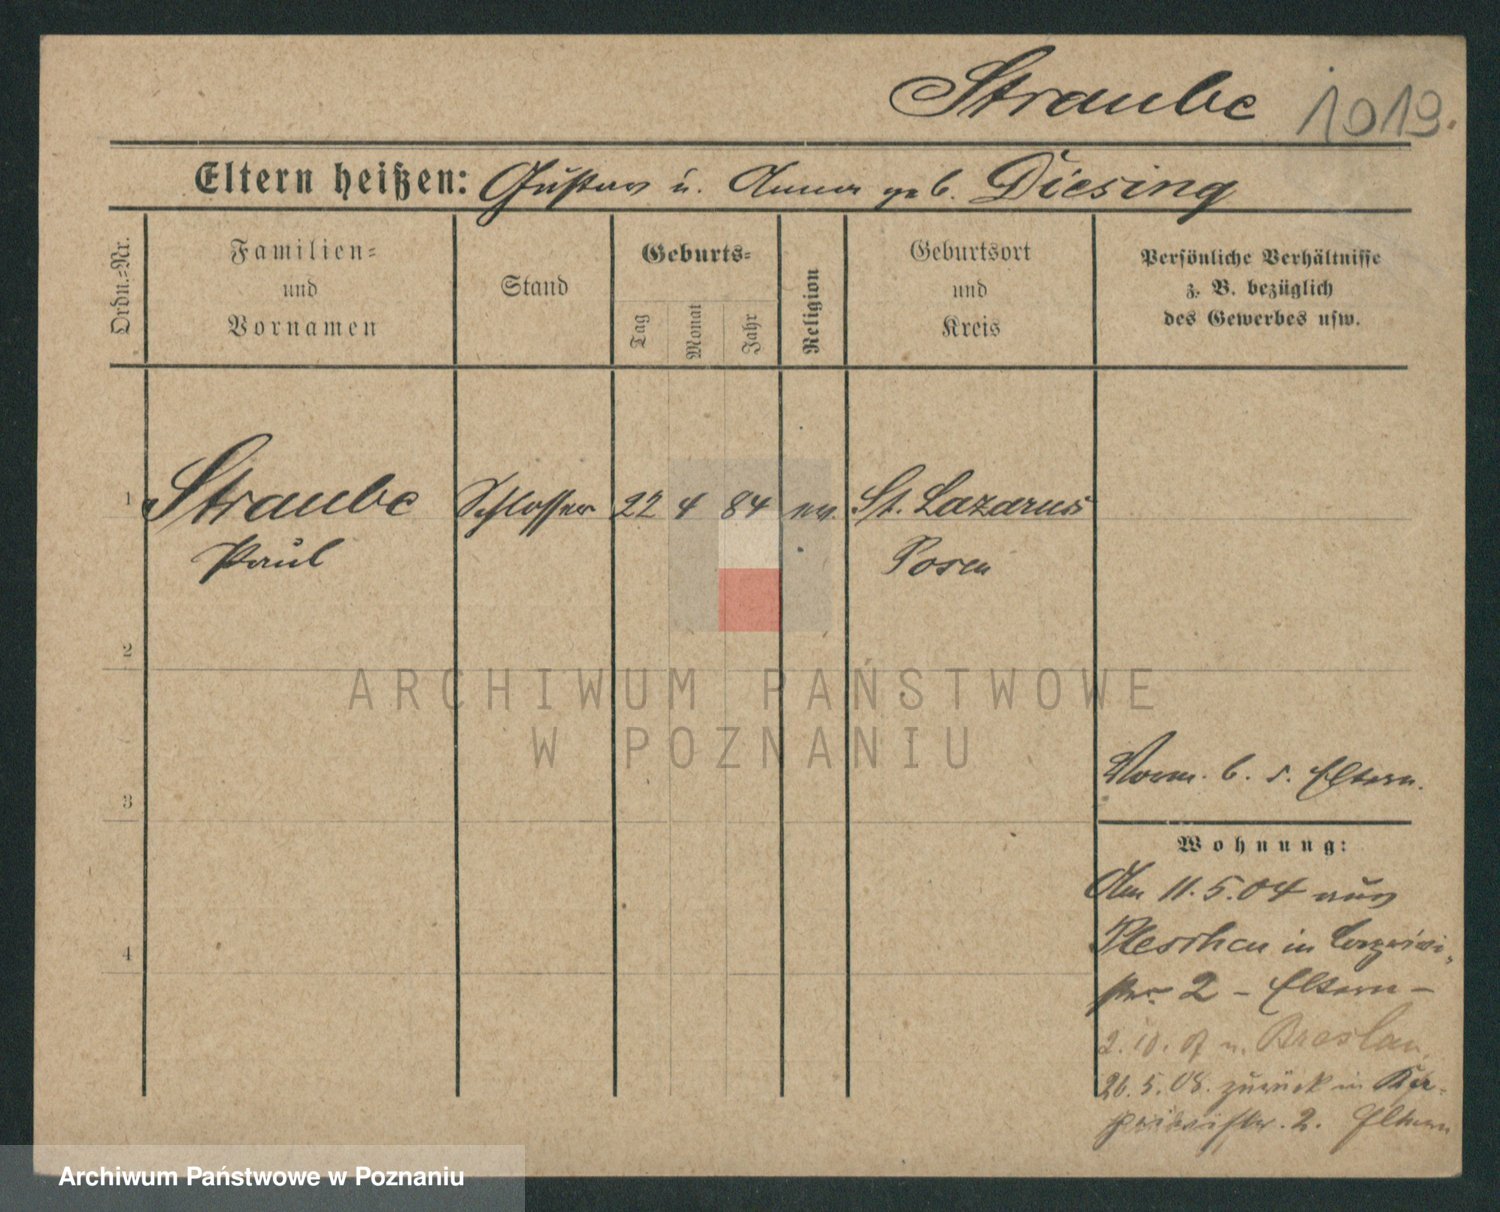 Straube 1019.
Eltern heißen: Gustav u. Anna geb. Diesing
Ordn.-Nr.
Familien-
und
Vornamen
Stand
Geburts-
Tag
Monat
Jahr
Religion
Geburtsort
und
Kreis
Persönliche Verhältnisse
z. B. bezüglich
des Gewerbes usw.
1 Straube Schlosser 22 4 84 ev. St. Lazarus
Paul Posen
2
3
4
ARCHIWUM PAŃSTWOWE
W POZNANIU
Vorm. b. s. Eltern.
Wohnung:
Am 11.5.04 aus
Pleschen in
str. 2 - Eltern -
2.10. n. Breslau
26.5.08. zurück in
2. Eltern
Archiwum Państwowe w Poznaniu